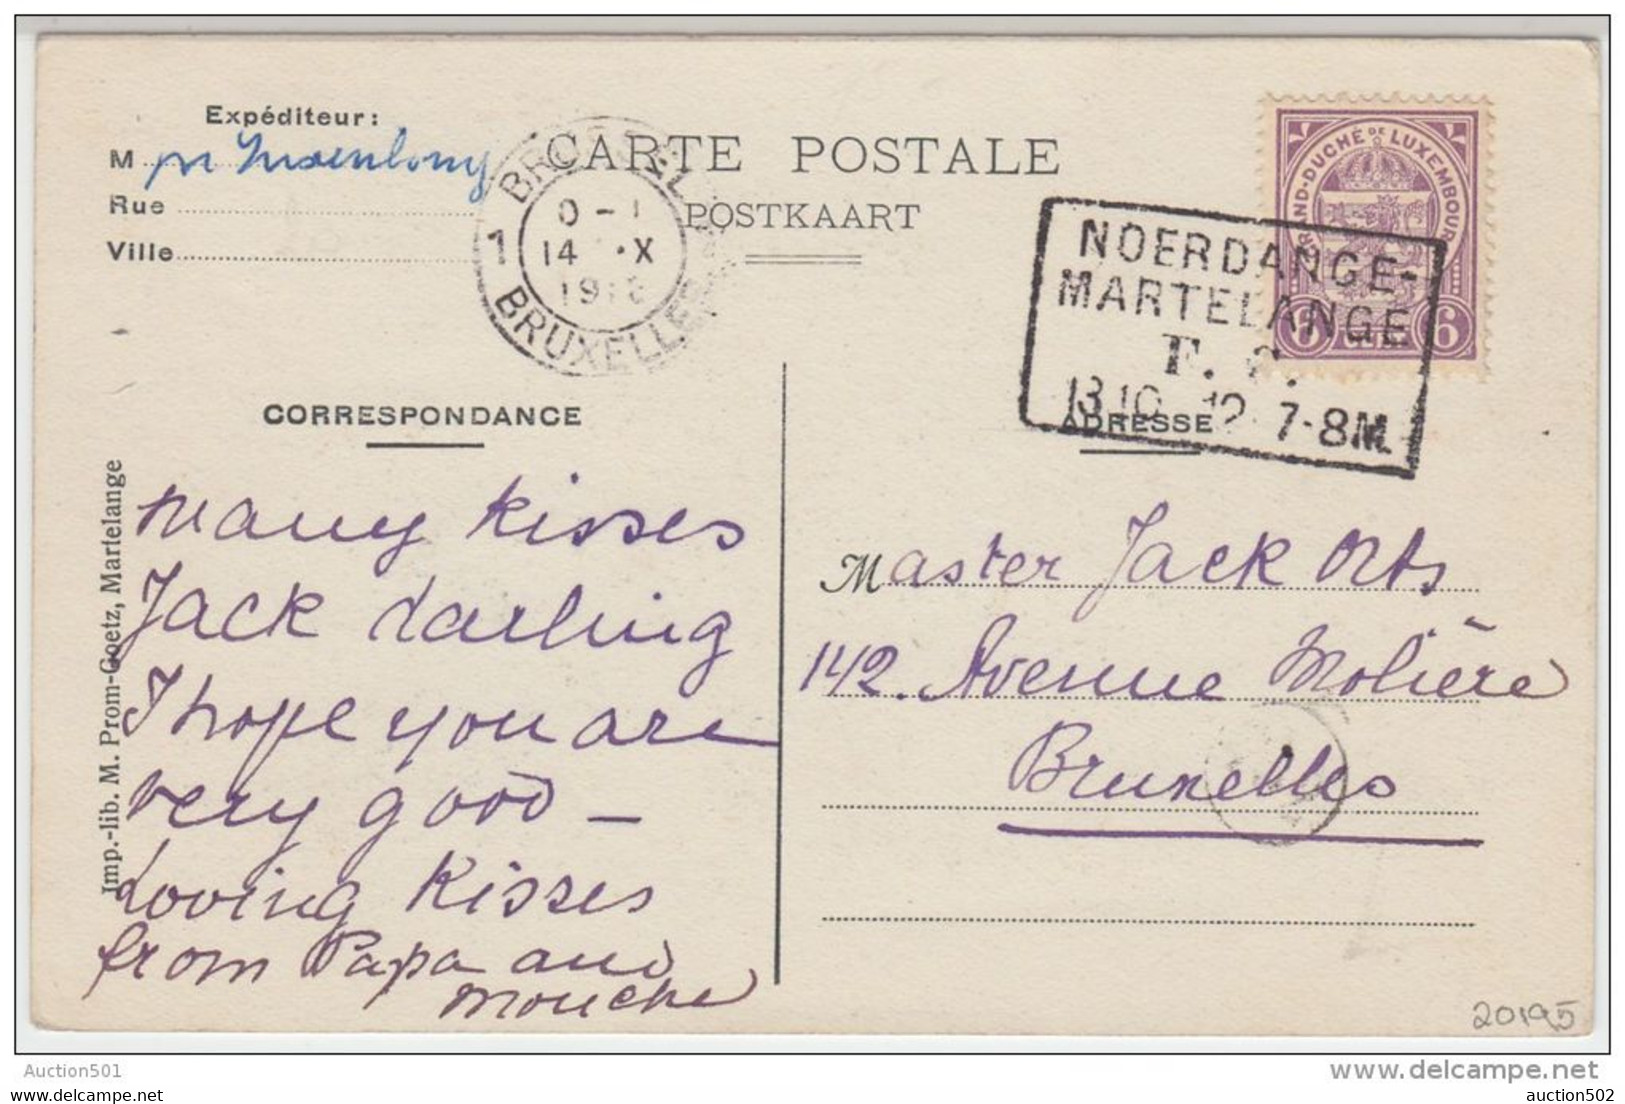 Expéditeur :
M
Rue
Ville
CARTE POSTALE
POSTKAART
1
14 X
BRUXELLES
GRAND-DUCHÉ DE LUXEMBOURG
6 6
NOERDANGE-
MARTELANGE
13.10 12 7-8M.
CORRESPONDANCE
ADRESSE
Imp.-lib. M. Prom-Goetz, Martelange
Many kisses
Jack darling
I hope you are
very good –
Loving kisses
from Papa and
Mouche
Master Jack Orts
142. Avenue Molière
Bruxelles
20195
Auction501
www.delcampe.net
auction502